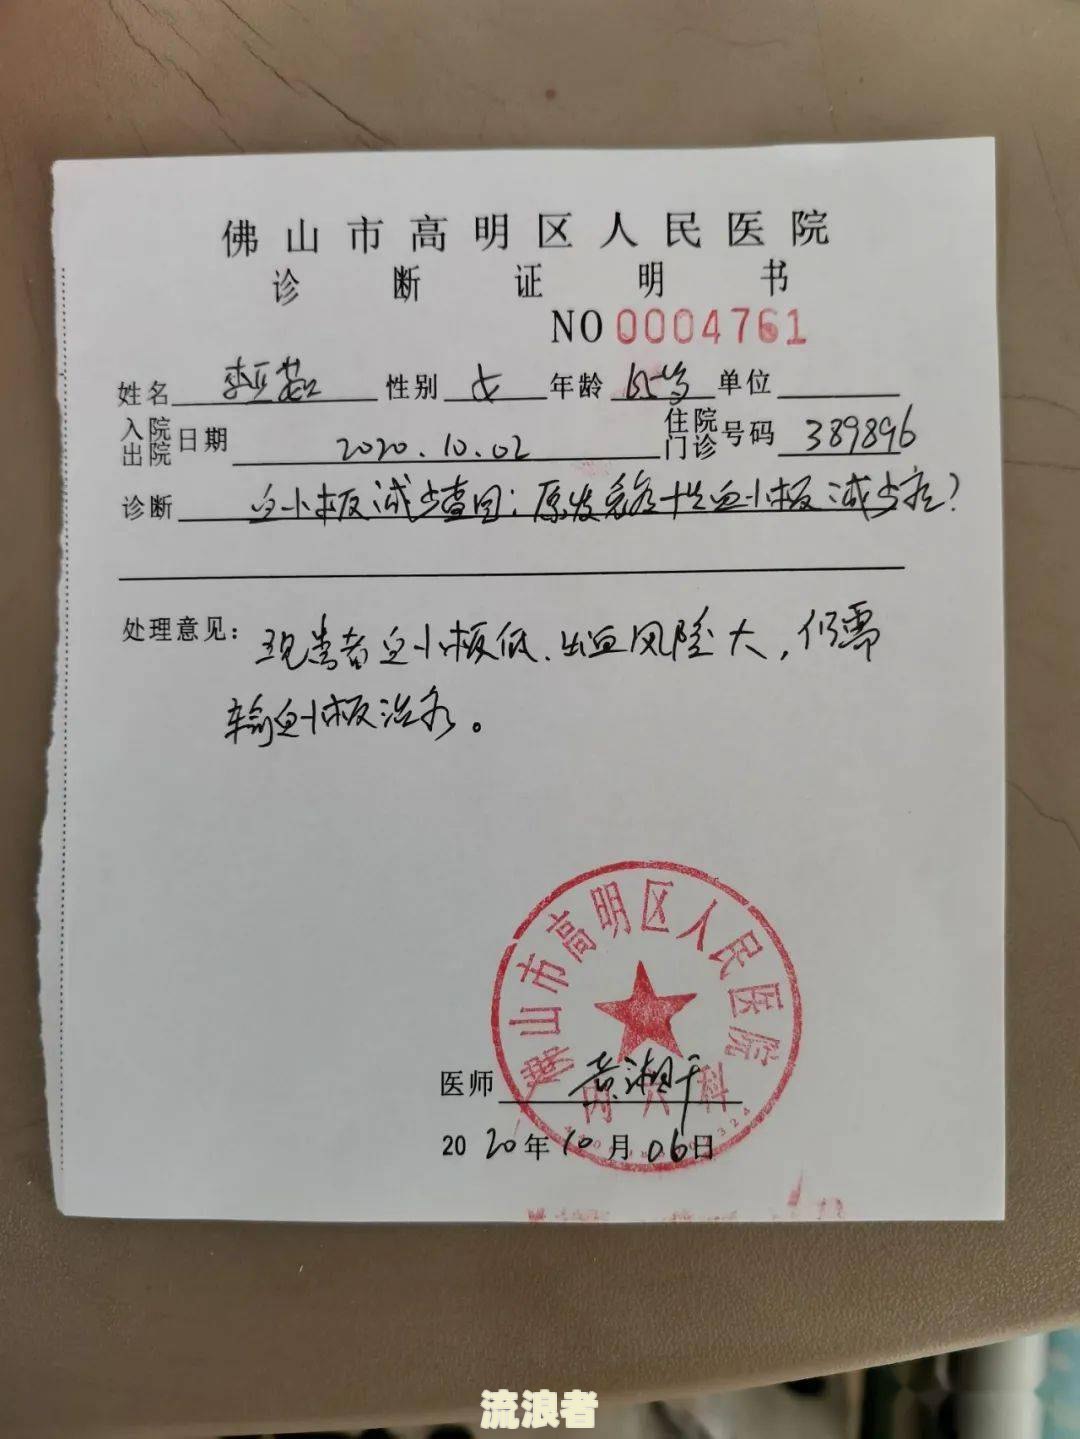 佛山市高明区人民医院
诊断证明书
NO 0004761
姓名 李亚 性别 女 年龄 岁 单位
入院
出院 日期 2020.10.02 住院
门诊 号码 389896
诊断 血小板减少查因：原发免疫性血小板减少症？
处理意见：现患者血小板低、出血风险大，仍需
输血小板治疗。
佛山市高明区人民医院
内 科
医师 黄湘
2020年10月06日
流浪者